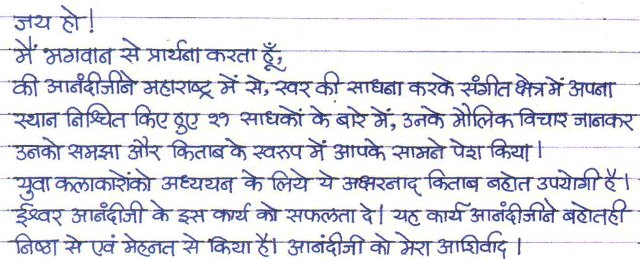 जय हो!
मैं भगवान से प्रार्थना करता हूँ,
की आनंदीजीने महाराष्ट्र में से, स्वर की साधना करके संगीत क्षेत्र में अपना
स्थान निश्चित किए हुए २१ साधकों के बारे में, उनके मौलिक विचार जानकर
उनको समझा और किताब के स्वरूप में आपके सामने पेश किया।
युवा कलाकारोंको अध्ययन के लिये ये अक्षरनाद् किताब बहोत उपयोगी है।
ईश्वर आनंदीजी के इस कार्य को सफलता दे। यह कार्य आनंदीजीने बहोतही
निष्ठा से एवं मेहनत से किया है। आनंदीजी को मेरा आशिर्वाद।